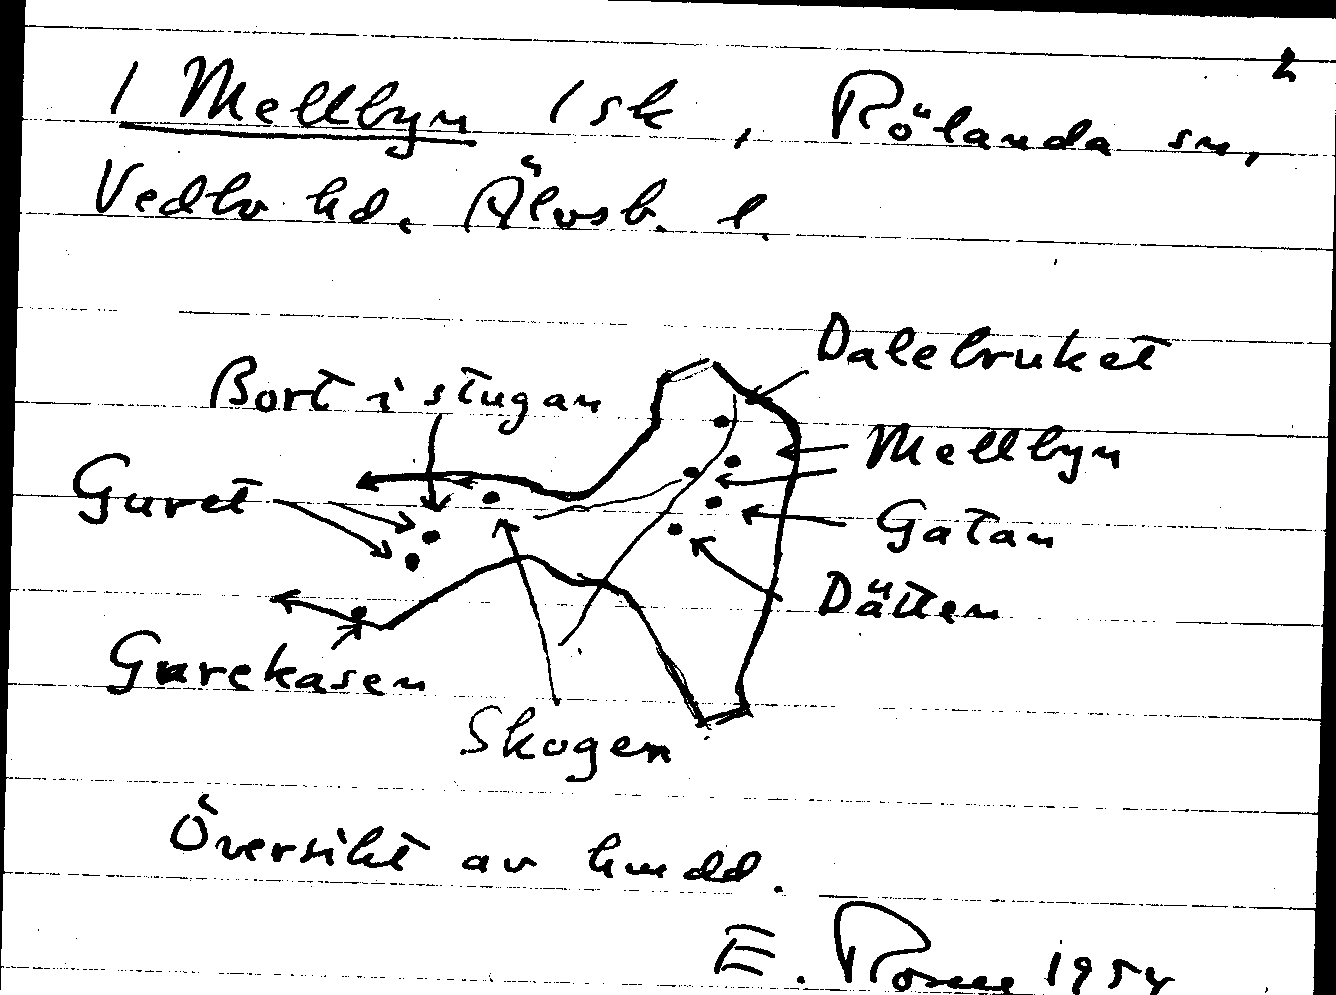 2
1 Mellbyn 1 sk, Rölanda sn,
Vedbo hd. Älvsb. l.
Dalebruket
Bort i stugan
Mellbyn
Guret
Gatan
Dätten
Gurekasen
Skogen
Översikt av
E. 1954